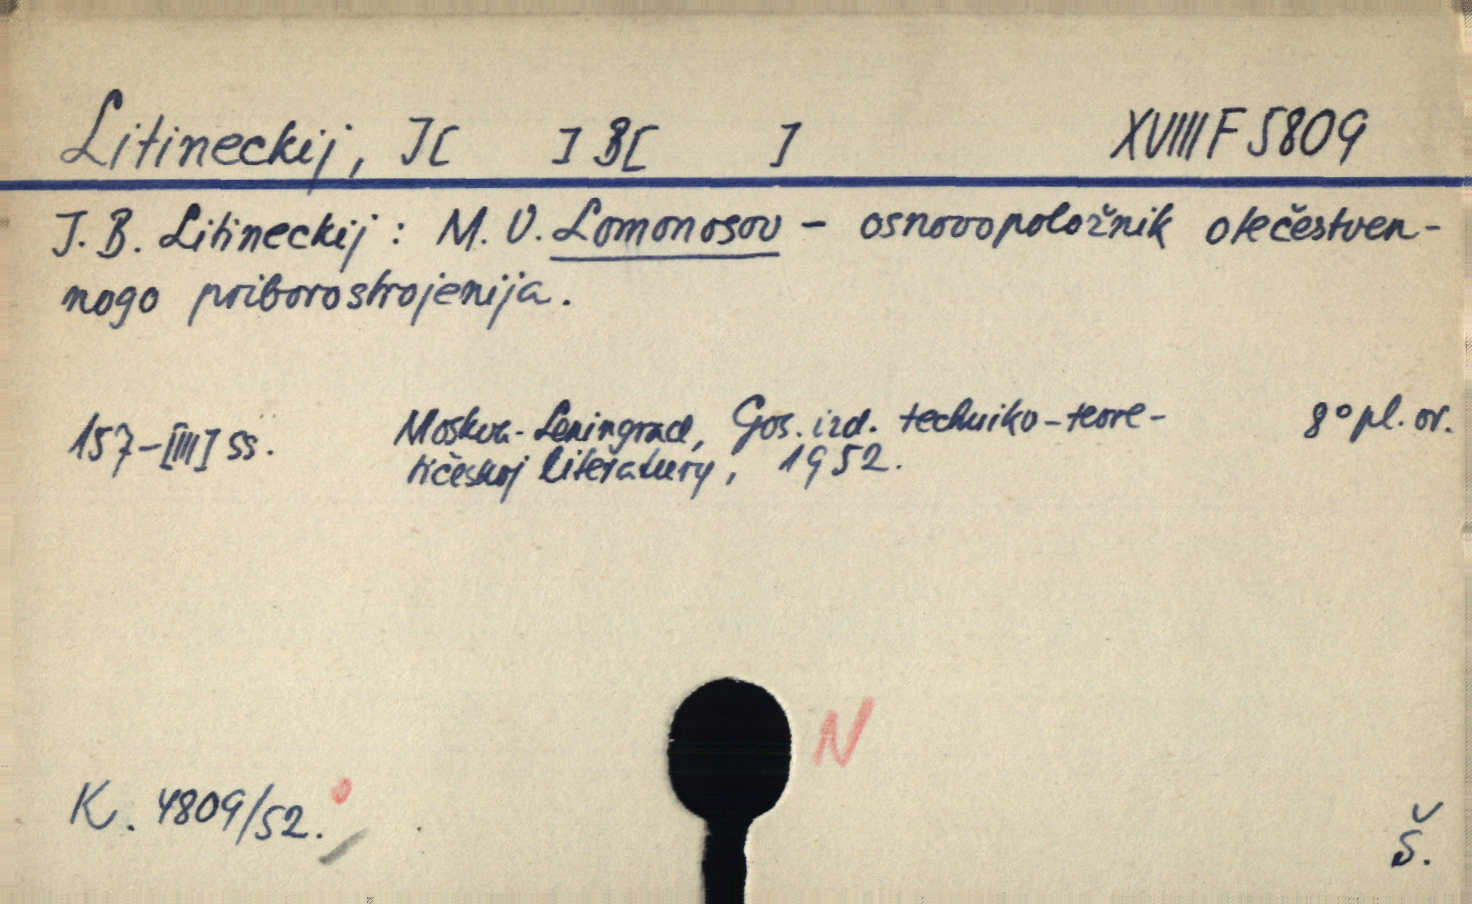 Litineckij, I[ ] B[ ] XVIII F 5809
I. B. Litineckij: M. V. Lomonosov – osnovopoložnik otečestven-
nogo priborostrojenija.
157-[III] ss. Moskva-Leningrad, Gos. izd. techniko-teore- 8° pl. or.
tičeskoj literatury, 1952.
N
K. 4809/52.
Š.